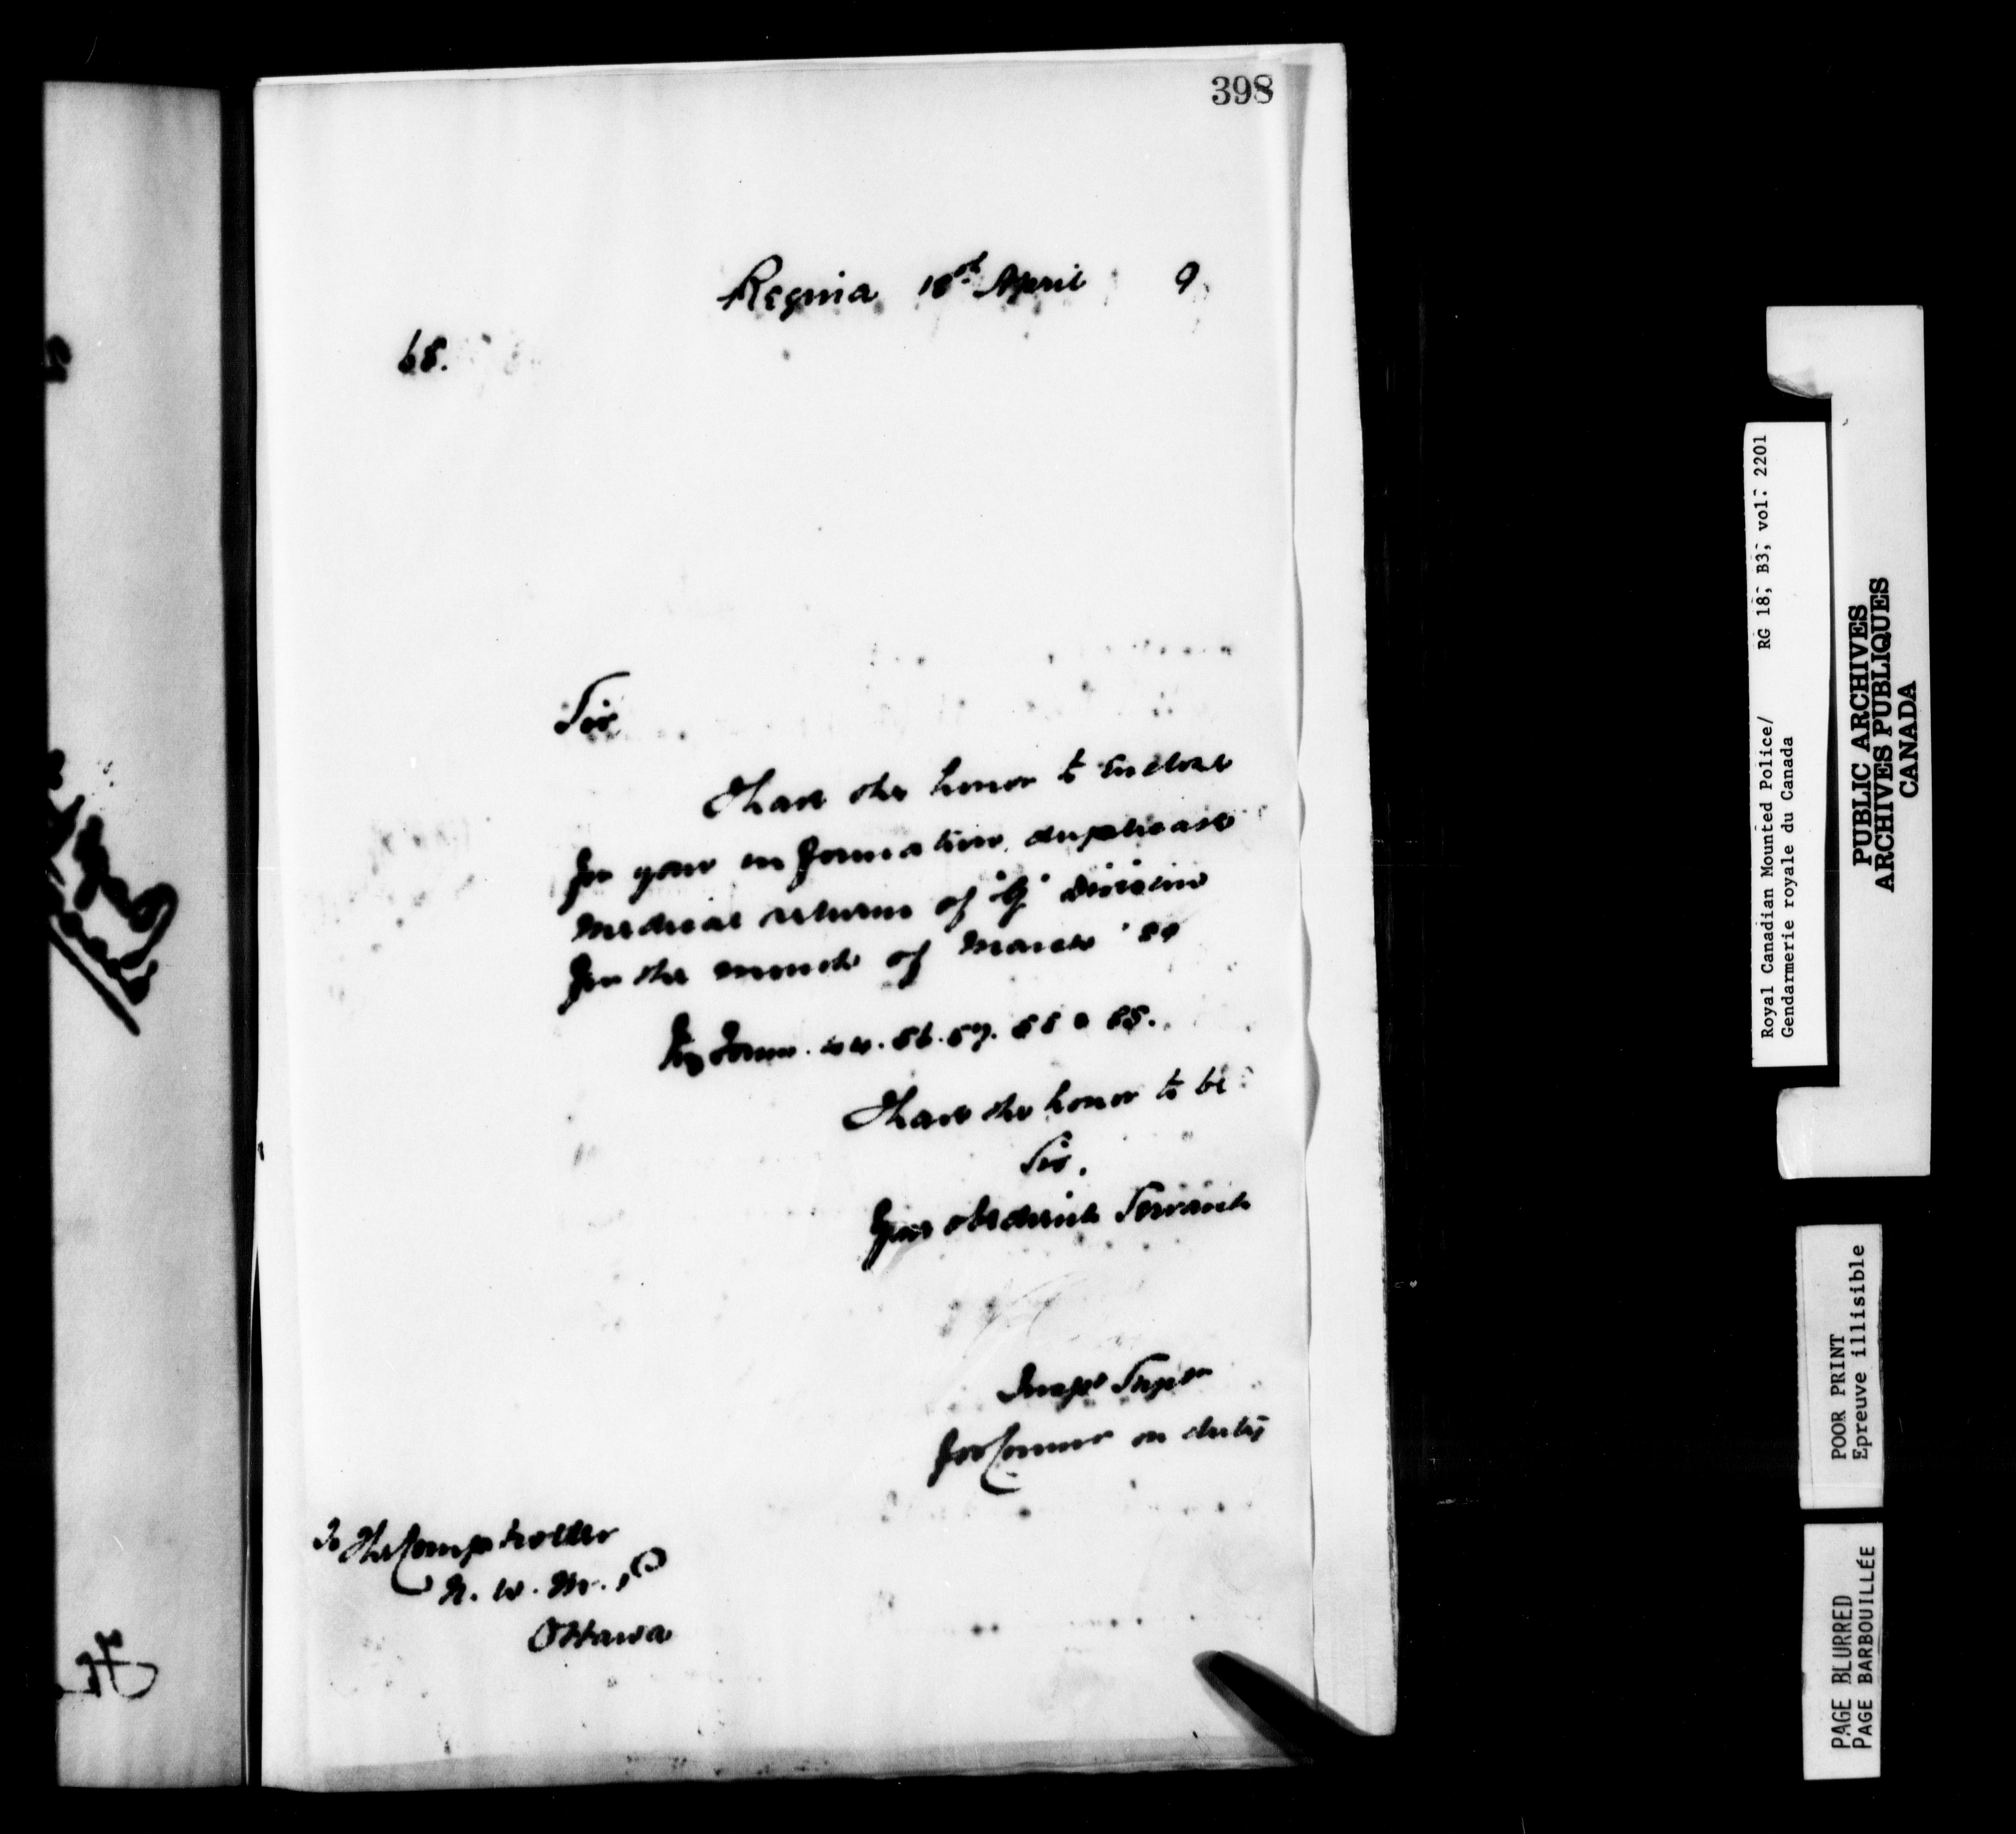 398
Regina 18th April 9
68.
Sir
I have the honor to enclose
for your information, duplicate
medical returns of "G" division
for the month of March '89
Forms. 56. 57. 58 & 65.
I have the honor to be
Sir,
Your obedient Servant
Supt
for Commr on duty
To The Comptroller
N. W. M. P
Ottawa
Royal Canadian Mounted Police/ RG 18, B3, vol. 2201
Gendarmerie royale du Canada
PUBLIC ARCHIVES
ARCHIVES PUBLIQUES
CANADA
POOR PRINT
Epreuve illisible
PAGE BLURRED
PAGE BARBOUILLÉE